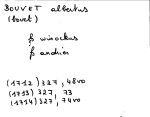 BOUVET albertus
(bovet)
& winockus
& andries
(1712) 327, 48vo
(1713) 327, 73
(1714) 327, 74vo